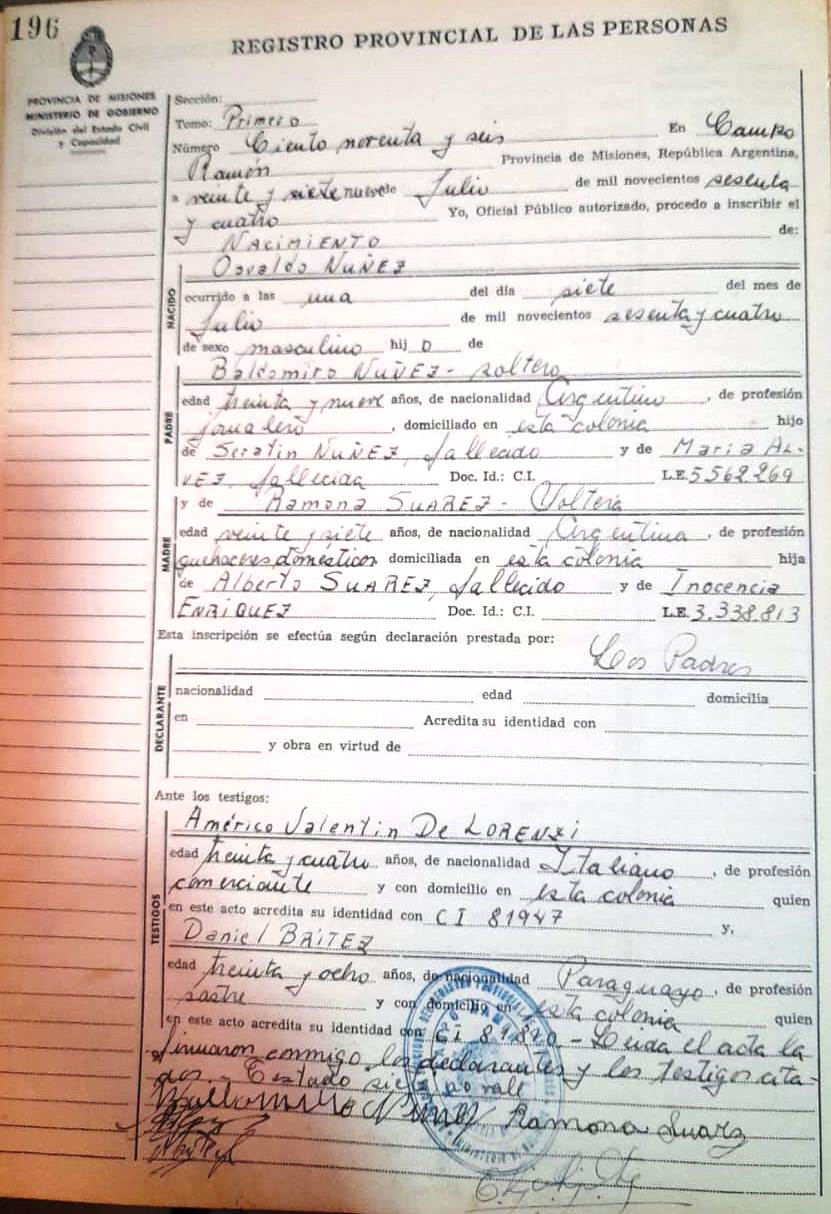 196
REGISTRO PROVINCIAL DE LAS PERSONAS
PROVINCIA DE MISIONES
MINISTERIO DE GOBIERNO
División del Estado Civil
y Capacidad
Sección:
Tomo: Primero
Número Ciento noventa y seis En Campo
Ramón Provincia de Misiones, República Argentina,
a veinte y siete nueve de Julio de mil novecientos sesenta
y cuatro Yo, Oficial Público autorizado, procedo a inscribir el
NACIMIENTO de:
NACIDO
Osvaldo NUÑEZ
ocurrido a las una del día siete del mes de
Julio de mil novecientos sesenta y cuatro
de sexo masculino hij o de
PADRE
Baldomiro NUÑEZ - soltero
edad treinta y nueve años, de nacionalidad Argentino, de profesión
jornalero, domiciliado en esta colonia hijo
de Serafin NUÑEZ, fallecido y de Maria AL-
VEZ, fallecida Doc. Id.: C.I. L.E. 5.562.269
MADRE
y de Ramona SUAREZ - Soltera
edad veinte y siete años, de nacionalidad Argentina, de profesión
quehaceres domésticos domiciliada en esta colonia hija
de Alberto SUAREZ, fallecido y de Inocencia
ENRIQUEZ Doc. Id.: C.I. L.E. 3.338.813
Esta inscripción se efectúa según declaración prestada por:
Los Padres
DECLARANTE
nacionalidad edad domicilia
en Acredita su identidad con
y obra en virtud de
Ante los testigos:
TESTIGOS
Américo Valentin De LORENZI
edad treinta y cuatro años, de nacionalidad Italiano, de profesión
comerciante y con domicilio en esta colonia quien
en este acto acredita su identidad con CI 81947 y,
Daniel BRITEZ
edad treinta y ocho años, de nacionalidad Paraguayo, de profesión
sastre y con domicilio en esta colonia quien
en este acto acredita su identidad con CI - Leida el acta la
firmaron conmigo los declarantes y los testigos cita-
dos. - Testado: siete no vale
Nuñez Ramona Suarez